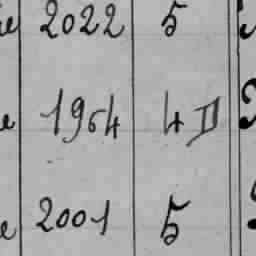 2022 5
1964 4 D
2001 5